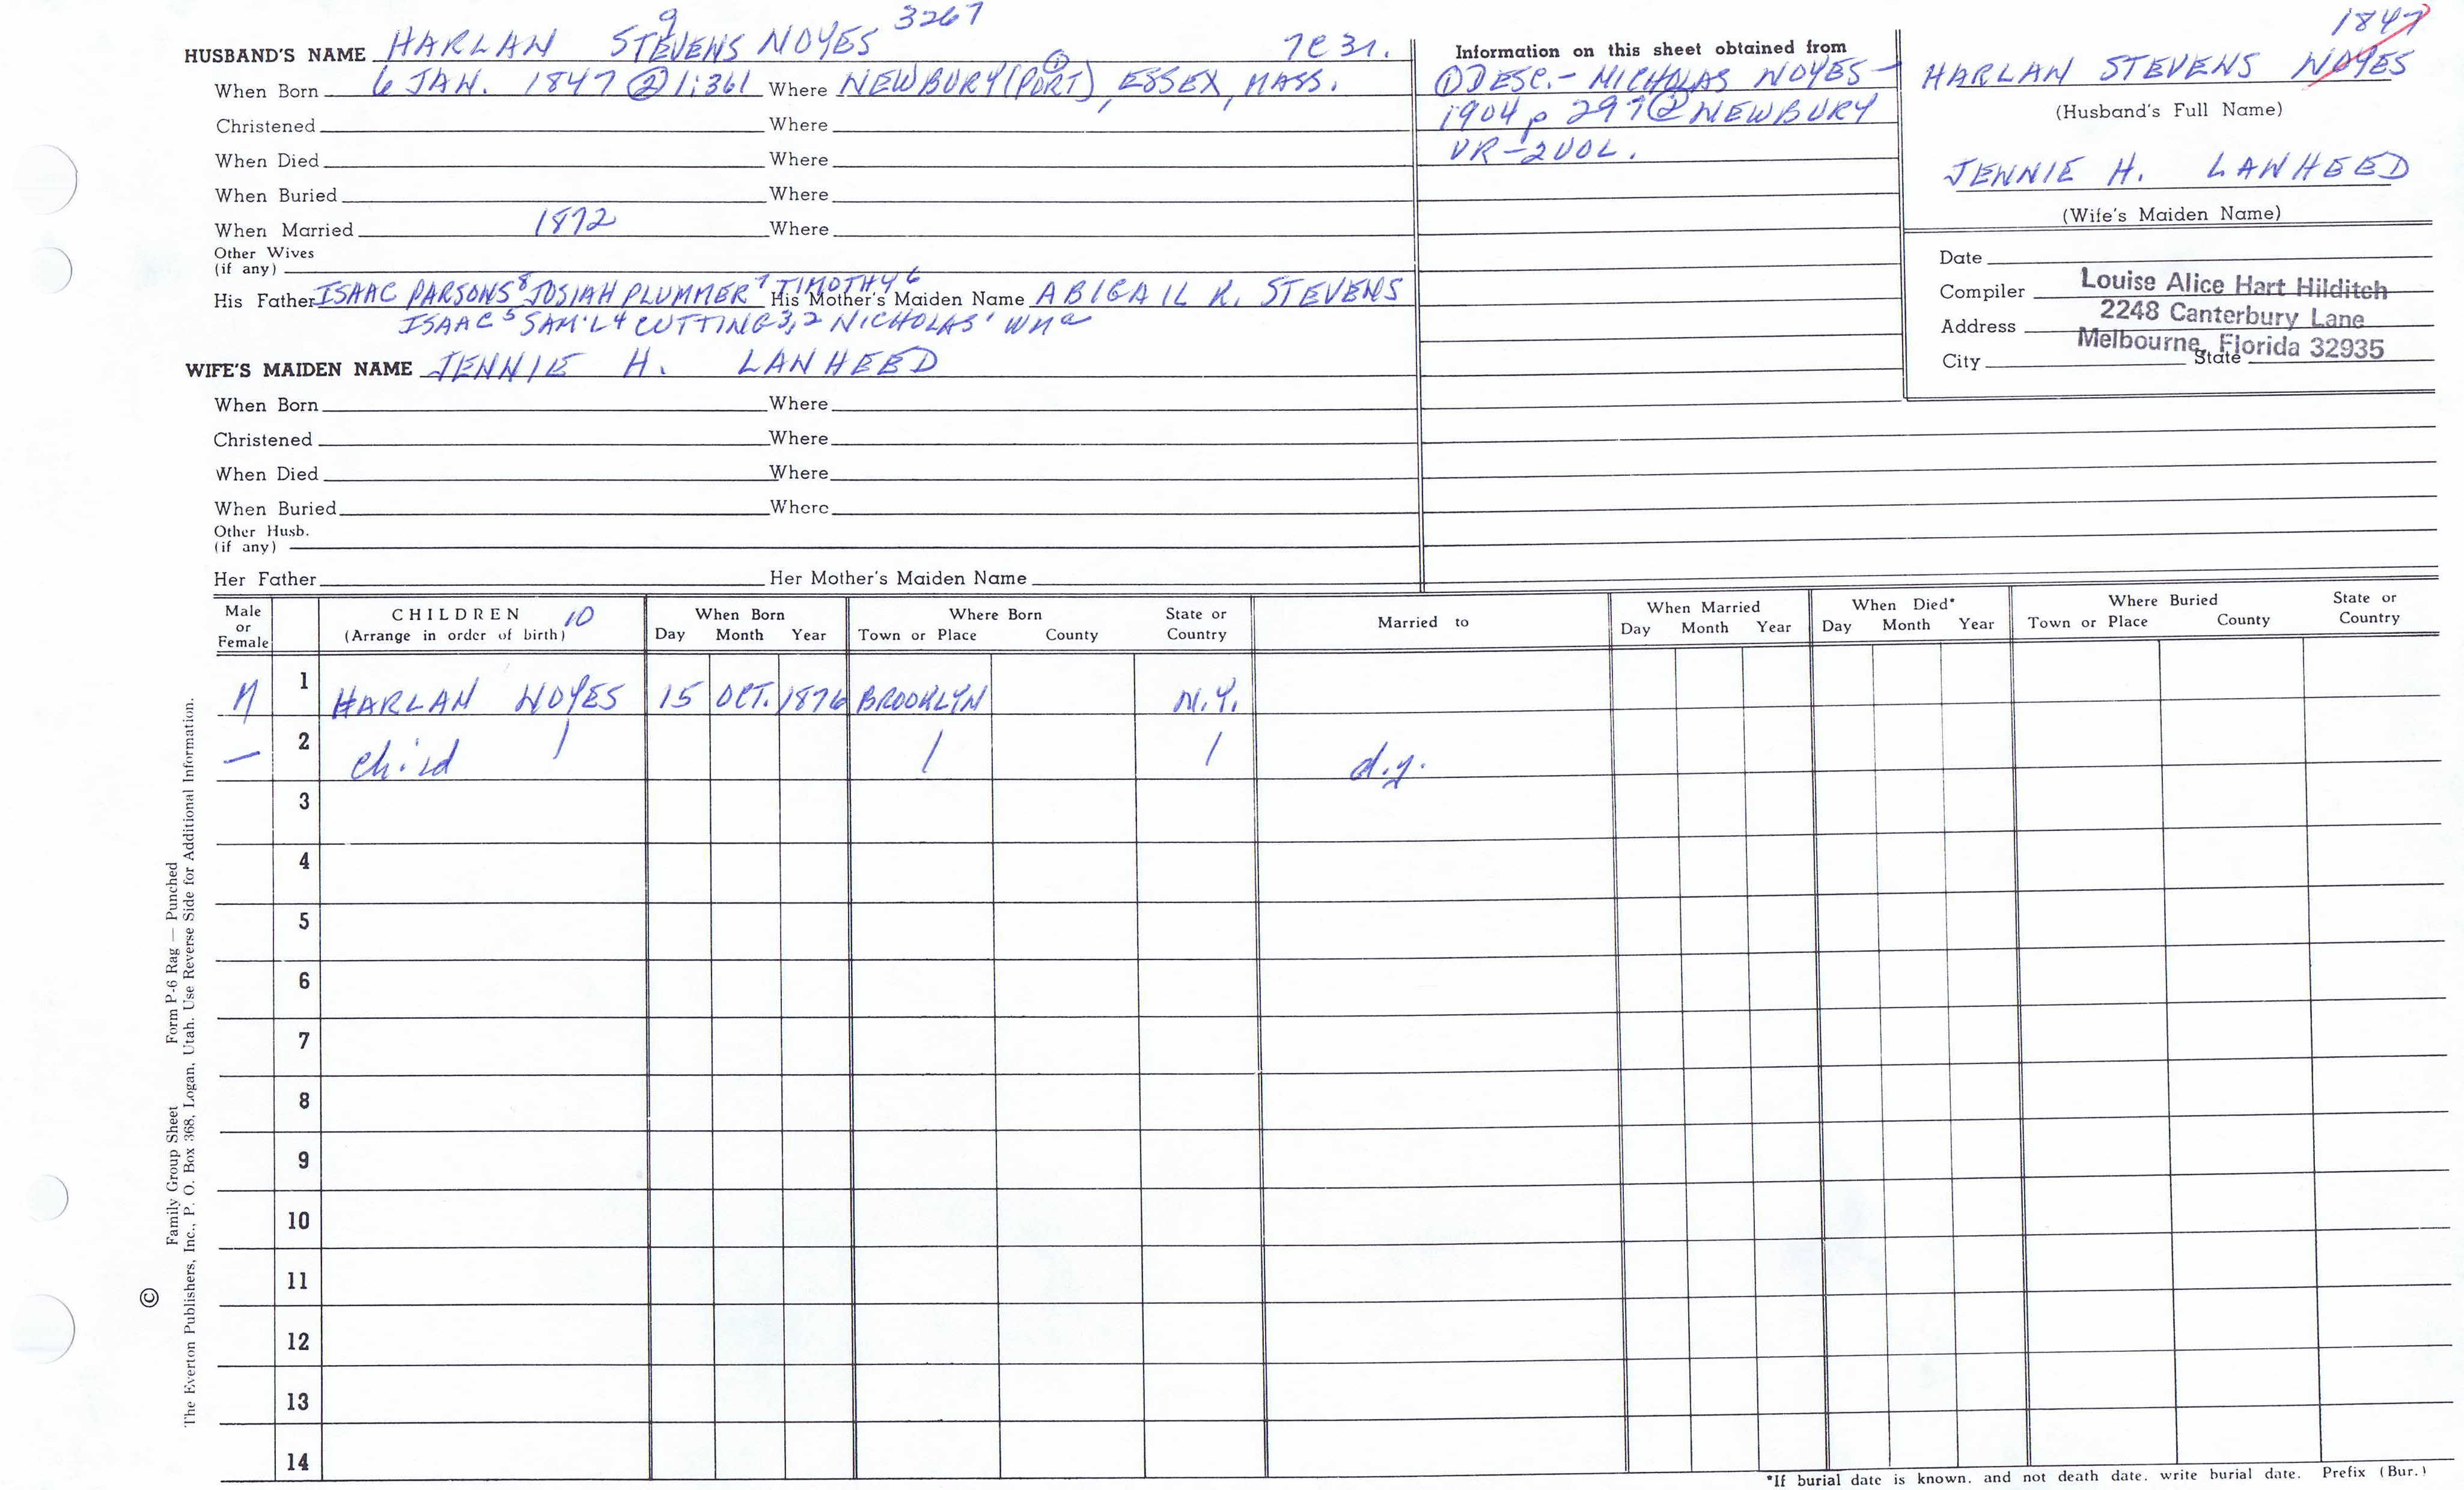 HUSBAND'S NAME HARLAN STEVENS⁹ NOYES 3267 7C31.
When Born 6 JAN. 1847 ② 1:361 Where NEWBURY(PORT)①, ESSEX, MASS.
Christened Where
When Died Where
When Buried Where
When Married 1872 Where
Other Wives
(if any)
His Father ISAAC PARSONS⁸ JOSIAH PLUMMER⁷ TIMOTHY⁶ His Mother's Maiden Name ABIGAIL K. STEVENS
ISAAC⁵ SAM'L⁴ CUTTING³,² NICHOLAS¹ WMᵃ
WIFE'S MAIDEN NAME JENNIE H. LANHEED
When Born Where
Christened Where
When Died Where
When Buried Where
Other Husb.
(if any)
Her Father Her Mother's Maiden Name
Information on this sheet obtained from
① DESC.- NICHOLAS NOYES-
1904 p 297 ② NEWBURY
VR-2VOL.
1847
HARLAN STEVENS NOYES
(Husband's Full Name)
JENNIE H. LANHEED
(Wife's Maiden Name)
Date
Compiler Louise Alice Hart Hilditch
Address 2248 Canterbury Lane
Melbourne, Florida 32935
City State
Male or Female CHILDREN 10 (Arrange in order of birth) When Born Day Month Year Where Born Town or Place County State or Country Married to When Married Day Month Year When Died* Day Month Year Where Buried Town or Place County State or Country
M 1 HARLAN NOYES 15 OCT. 1876 BROOKLYN N.Y.
— 2 child / / / d.y.
3
4
5
6
7
8
9
10
11
12
13
14
*If burial date is known, and not death date, write burial date. Prefix (Bur.)
© Family Group Sheet Form P-6 Rag — Punched
The Everton Publishers, Inc., P. O. Box 368, Logan, Utah. Use Reverse Side for Additional Information.